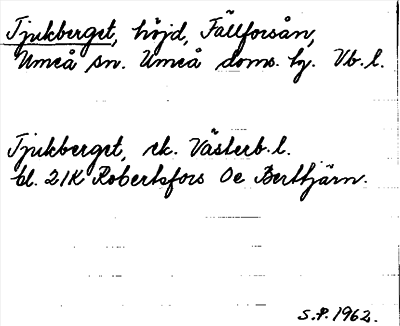 Tjukberget, höjd, Fällforsån,
Umeå sn. Umeå doms. hg. Vb. l.
Tjukberget, ek. Västerb. l.
bl. 21K Robertsfors 0e Berttjärn.
S.P. 1962.